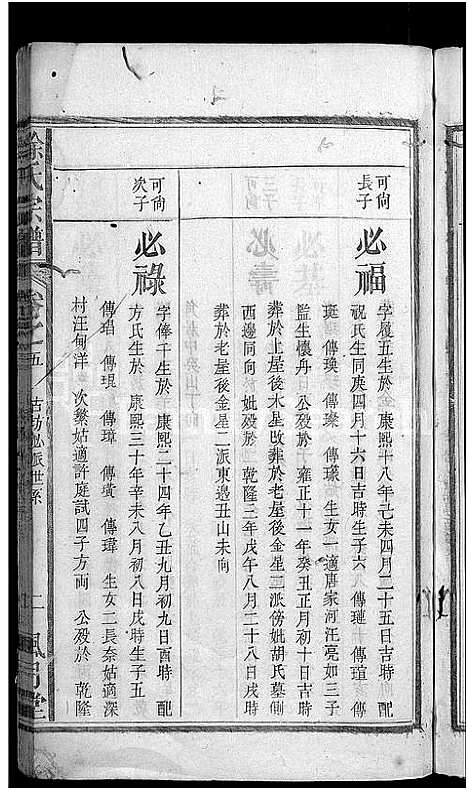 可尙長子
必福
字履五生於 康熙十八年己未四月二十五日吉時 配
祝氏生同庚四月十六日吉時生子六 傳璉 傳瑄 傳
珽 傳瑛 傳璨 傳璟 生女一適唐家河汪亮如三子
監生懷丹 公殁於 雍正十一年癸丑正月初十日吉時
葬於上屋後水星改葬於老屋後金星二派傍妣胡氏墓側
西邊同向 妣殁於 乾隆三年戊午八月二十八日戌時
葬於老屋後金星二派東邊丑山未向
可尙次子
必祿
字俸千生於 康熙二十四年乙丑九月初九日酉時 配
方氏生於 康熙三十年辛未八月初八日戌時生子五
傳瑁 傳琨 傳璋 傳璜 傳瑋 生女二長奈姑適深
村汪甸洋 次變姑適許庭試四子方兩 公殁於 乾隆
徐氏宗譜 卷之五 派世系